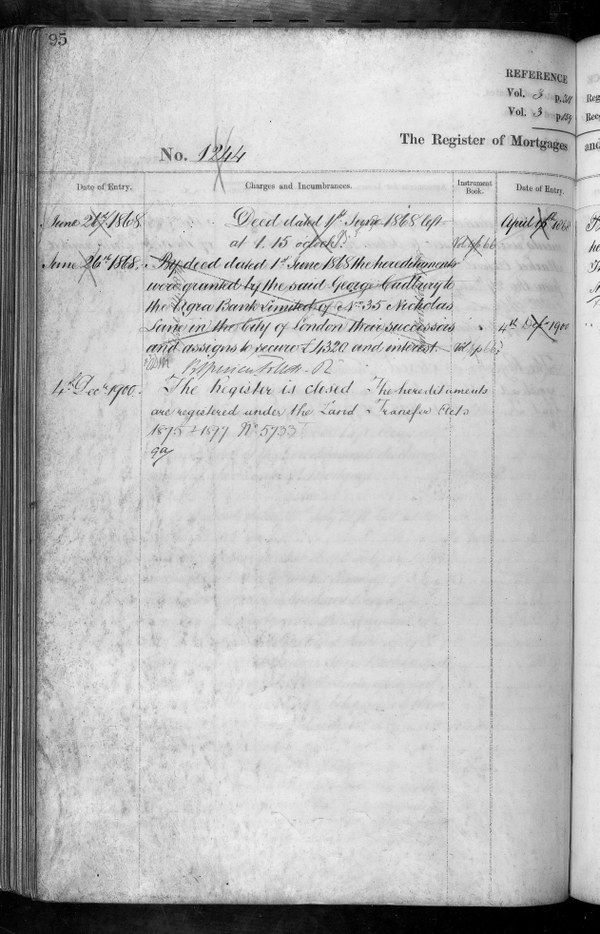 95
REFERENCE
Vol. 3 p.
Vol. 3 p.
The Register of Mortgages and
No. 1244
Date of Entry.
Charges and Incumbrances.
Instrument Book.
Date of Entry.
June 26th 1868.
Deed dated 1st June 1868 left
at 1.15 oclock
April
June 26th 1868.
By deed dated 1st June 1868 the hereditaments
were granted by the said George Cadbury to
the Agra Bank Limited of No 35 Nicholas
Lane in the City of London their successors
4th Decr 1900
and assigns to secure £4320 and interest.
4th Decr 1900.
The Register is closed The hereditaments
are registered under the Land Transfer Acts
1875 & 1897 No 5733